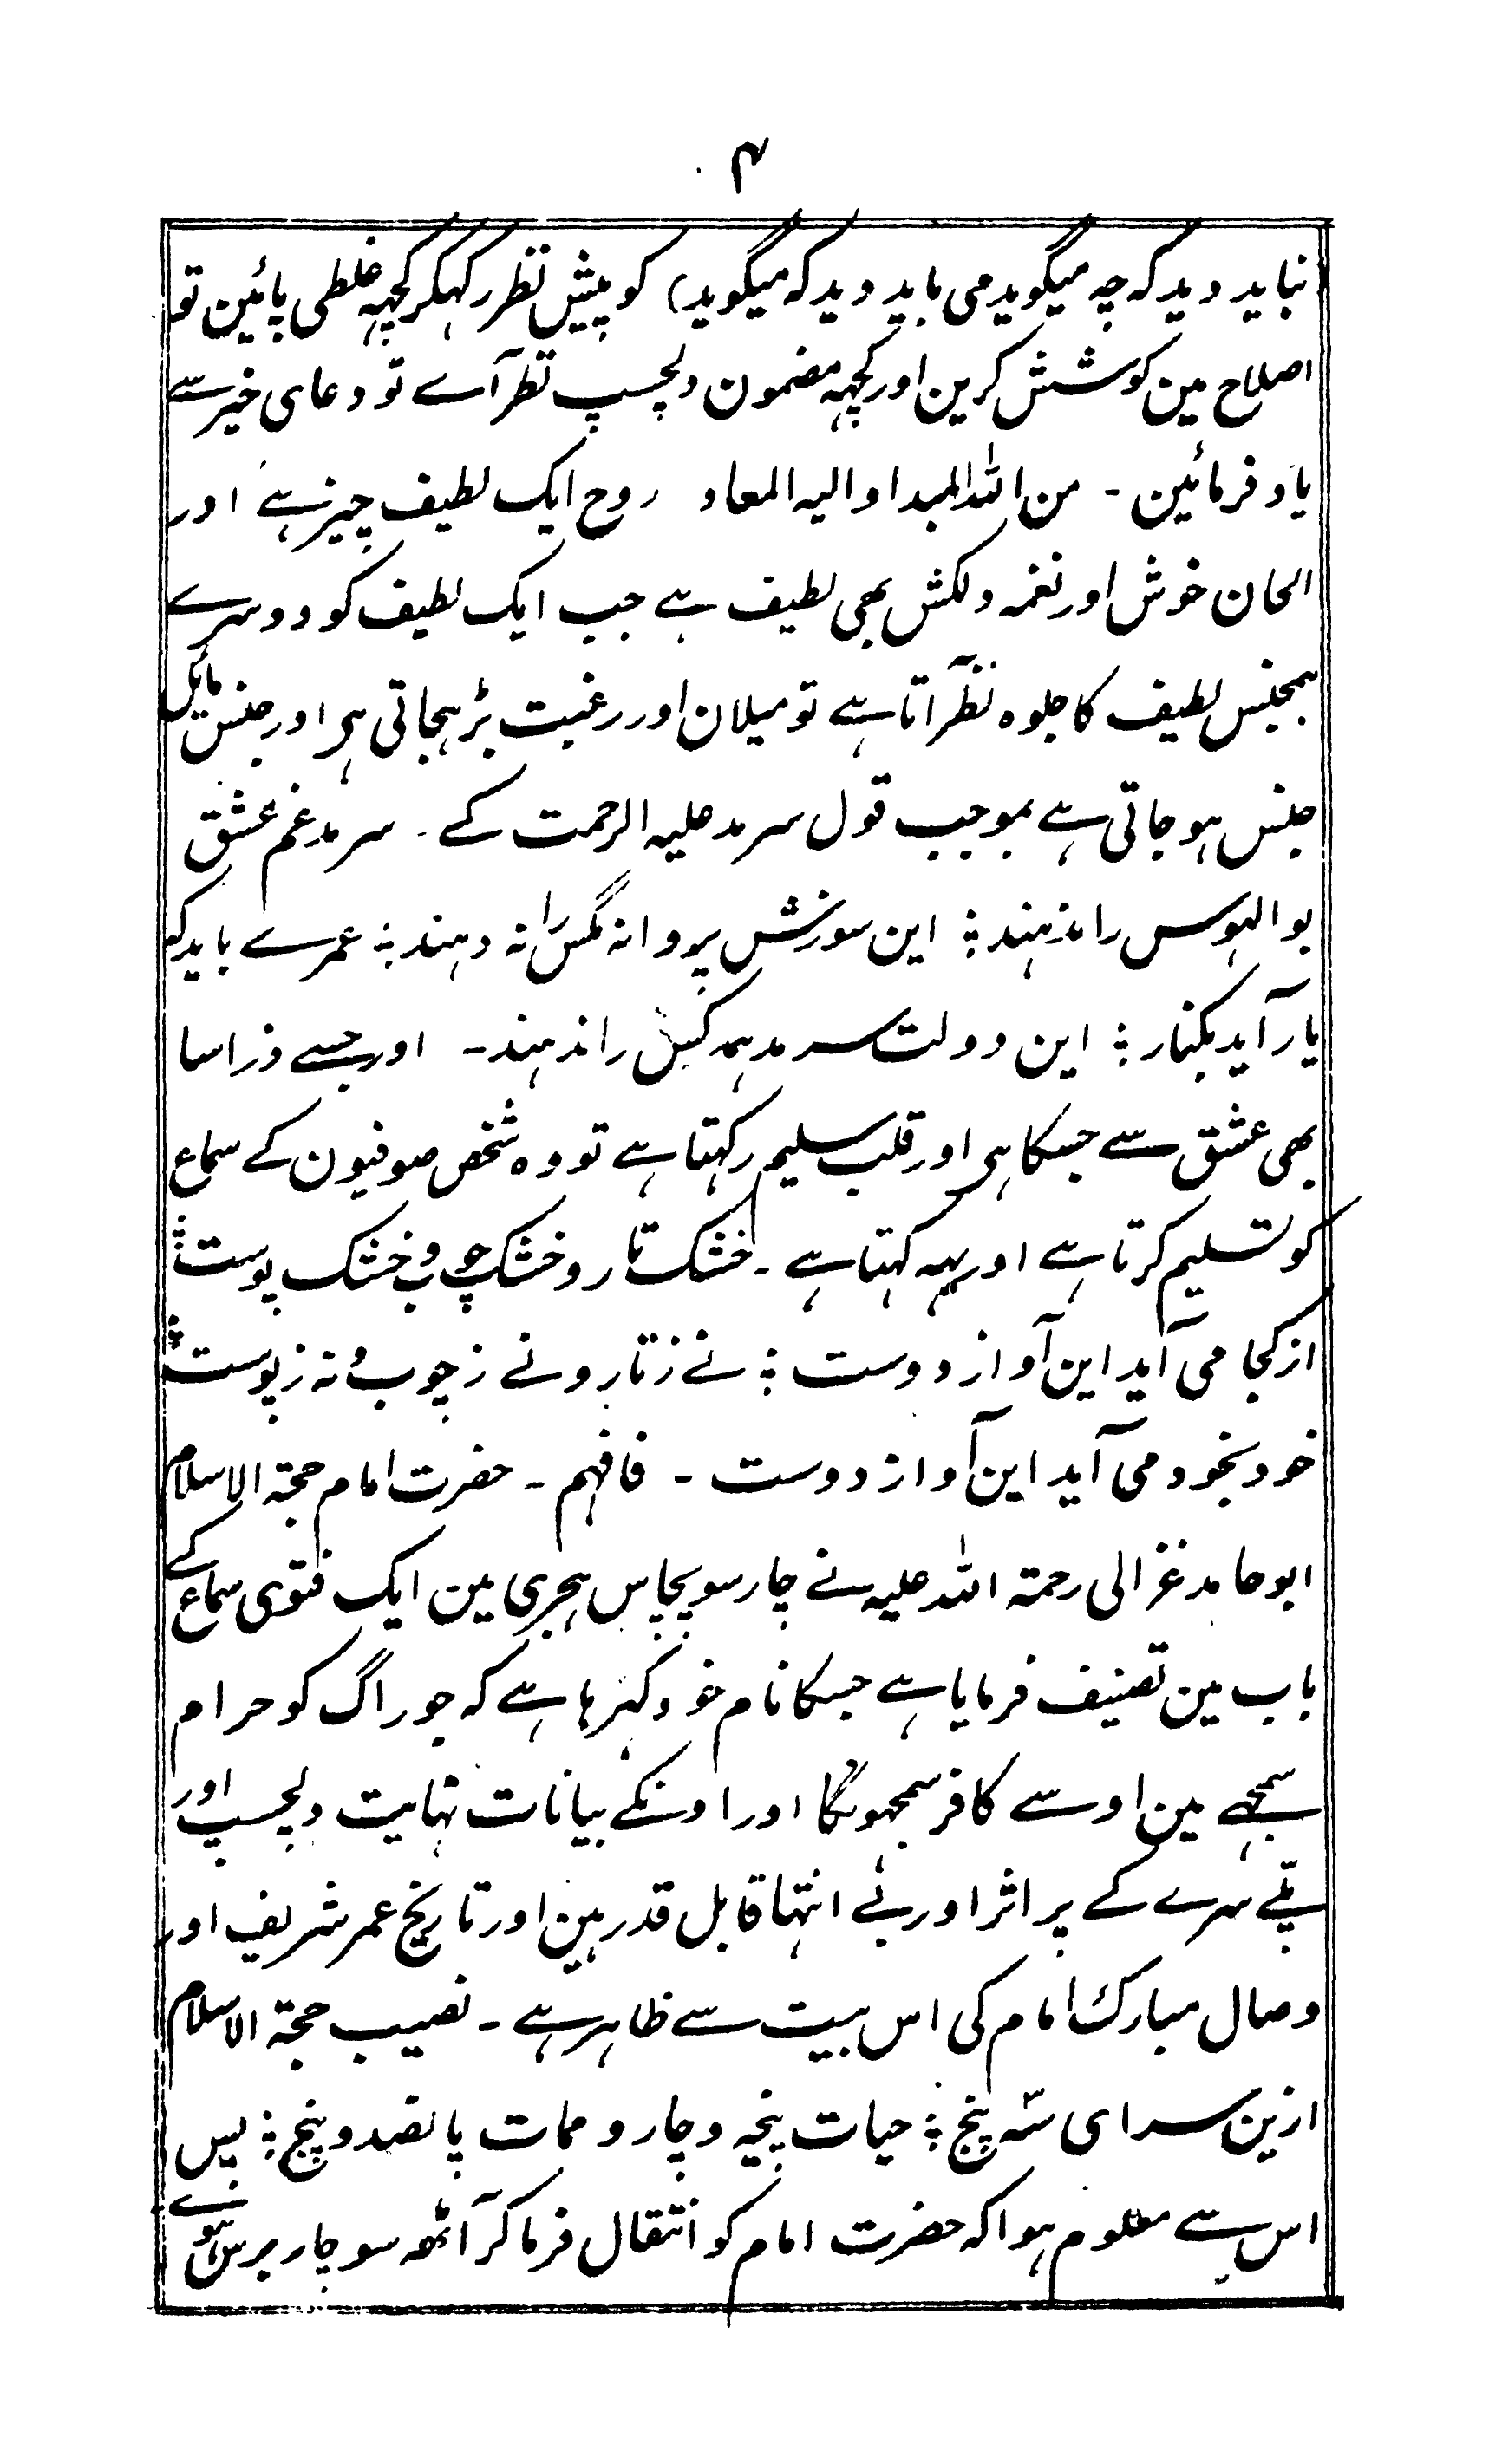 ۴
(نباید دید که چه میگوید می باید دید که میگوید) کو پیش نظر رکہکر کچہہ غلطی پائین تو
اصلاح مین کوشش کرین اور کچہہ مضمون دلچسپ نظر آے تو دعای خیر سے
یاد فرمائین ۔ من اللہ المبدا والیہ المعاد روح ایک لطیف چیز ہے اور
الحان خوش اور نغمہ دلکش بھی لطیف ہے جب ایک لطیف کو دوسرے
ہمجنس لطیف کا جلوہ نظر آتا ہے تو میلان اور رغبت بڑہجاتی ہی اور جنس مائل
جنس ہو جاتی ہے بموجب قول سرمد علیہ الرحمت کے ۔ سرمد غم عشق
بوالہوس را ندہند ؛ این سوزش پروانہ مگس را نہ دہند ؛ عمرے باید کہ
یار آید بکنار ؛ این دولت سرمد ہمہ کس را ندہند ۔ اور جسے ذرا سا
بھی عشق سے جسکا ہی اور قلب سلیم رکہتا ہے تو وہ شخص صوفیون کے سماع
کو تسلیم کرتا ہے اور یہہ کہتا ہے ۔ خشک تار و خشک چوب و خشک پوست ؛
از کجا می آید این آواز دوست ؛ نے ز تار و نے ز چوب و نہ ز پوست ؛
خود بخود می آید این آواز دوست ۔ فافہم ۔ حضرت امام حجۃ الاسلام
ابو حامد غزالی رحمۃ اللہ علیہ نے چار سو پچاس ہجری مین ایک فتوی سماع کے
باب مین تصنیف فرمایا ہے جسکا نام خود کہر ہا ہے کہ جو راگ کو حرام
سمجہے مین اوسے کافر سمجہونگا اور اونکے بیانات نہایت دلچسپ اور
پلّے سرے کے پر اثر اور بے انتہا قابل قدر ہین اور تاریخ عمر شریف اور
وصال مبارک امام کی اس بیت سے ظاہر ہے ۔ نصیب حجۃ الاسلام
ازین سرای سہ پنج ؛ حیات پنجہ و چار و ممات پانصد و پنج ؛ پس
اس سے معلوم ہوا کہ حضرت امام کو انتقال فرما کر آٹھہ سو چار برس ہوے